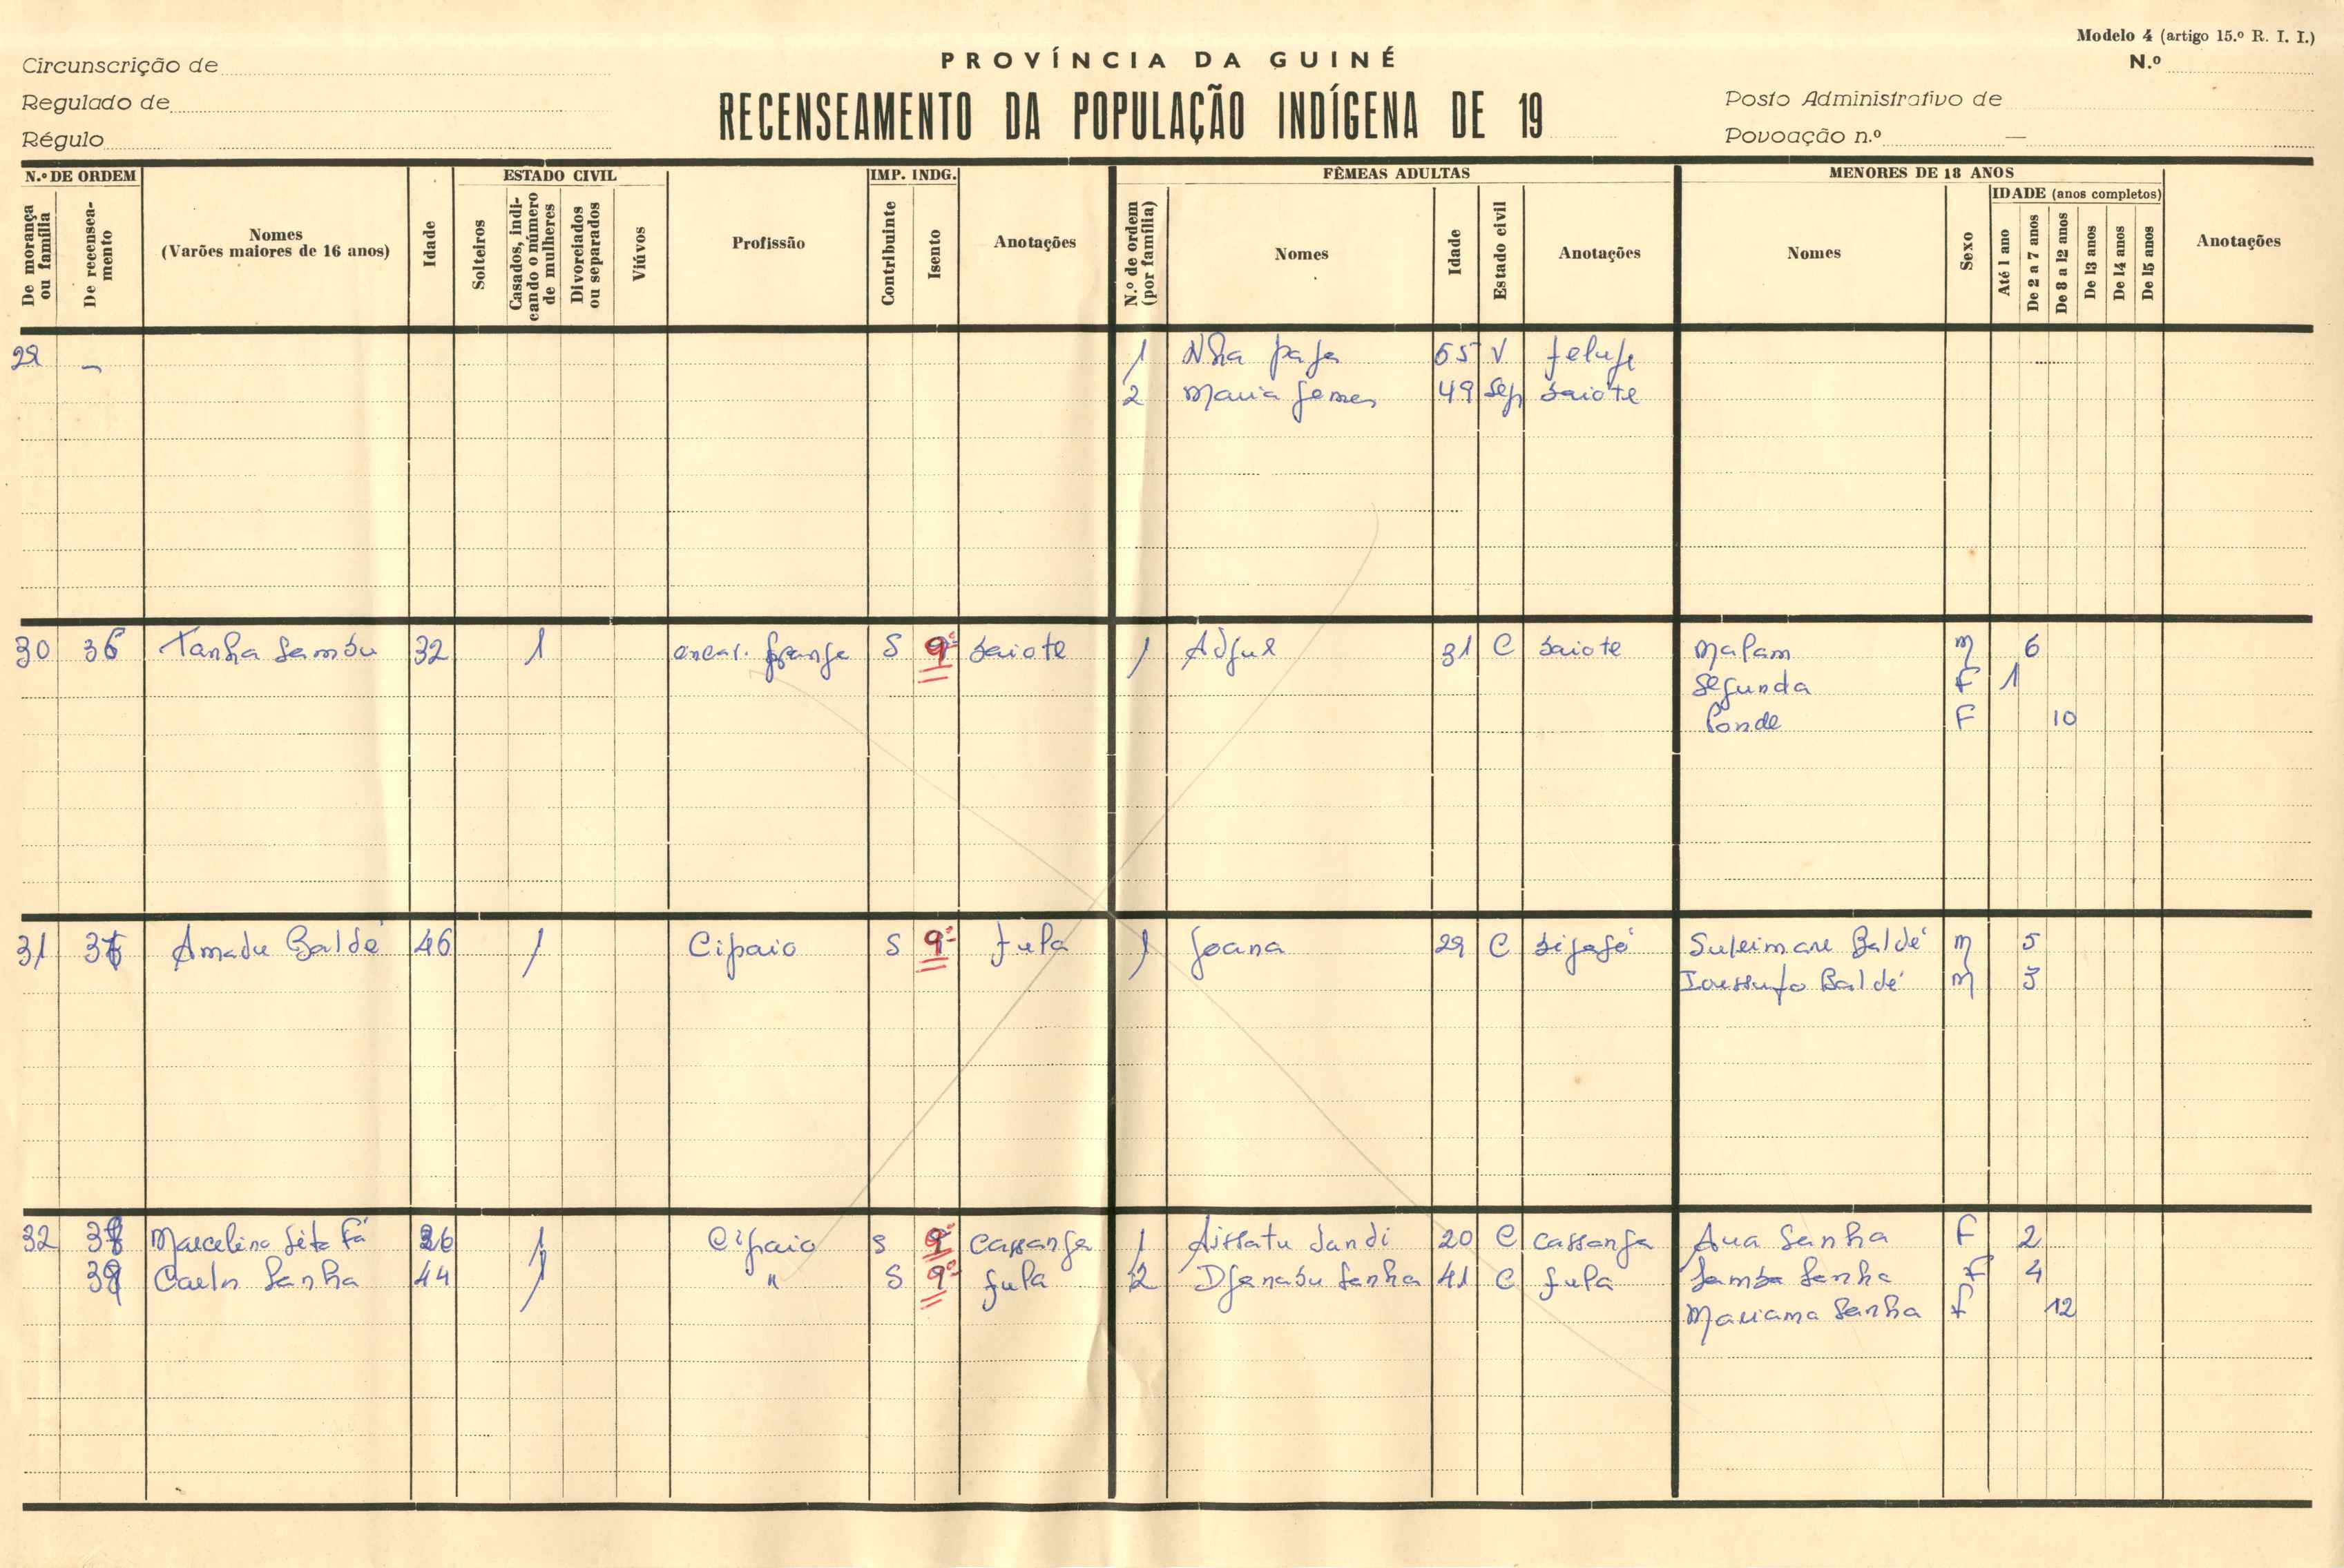 Modelo 4 (artigo 15.º R. I. I.)
PROVÍNCIA DA GUINÉ
N.º
Circunscrição de
Regulado de
RECENSEAMENTO DA POPULAÇÃO INDÍGENA DE 19
Posto Administrativo de
Régulo
Povoação n.º —
N.º DE ORDEM
ESTADO CIVIL
IMP. INDG.
FÊMEAS ADULTAS
MENORES DE 18 ANOS
IDADE (anos completos)
De morança ou família
De recenseamento
Nomes (Varões maiores de 16 anos)
Idade
Solteiros
Casados, indicando o número de mulheres
Divorciados ou separados
Viúvos
Profissão
Contribuinte
Isento
Anotações
N.º de ordem (por família)
Nomes
Idade
Estado civil
Anotações
Nomes
Sexo
Até 1 ano
De 2 a 7 anos
De 8 a 12 anos
De 13 anos
De 14 anos
De 15 anos
Anotações
29 — 1 Nha V felupe
2 Maria Gomes 49 Sep baiote
30 36 Tanha Sambu 32 1 S 9º baiote 1 31 C baiote Malam M 6
Segunda F 1
F 10
31 Amadu Baldé 46 1 Cipaio S 9º fula 1 Joana 29 C bijagó Suleimane Baldé M 5
Baldé M 3
32 Marcelino 1 Cipaio S 9º Cassanga 1 Aissatu 20 C Cassanga Aua Sanha F 2
39 Sanha 44 1 " S 9º fula 2 Djenabu Sanha 41 C fula Samba Sanha F 4
Mariama Sanha F 12